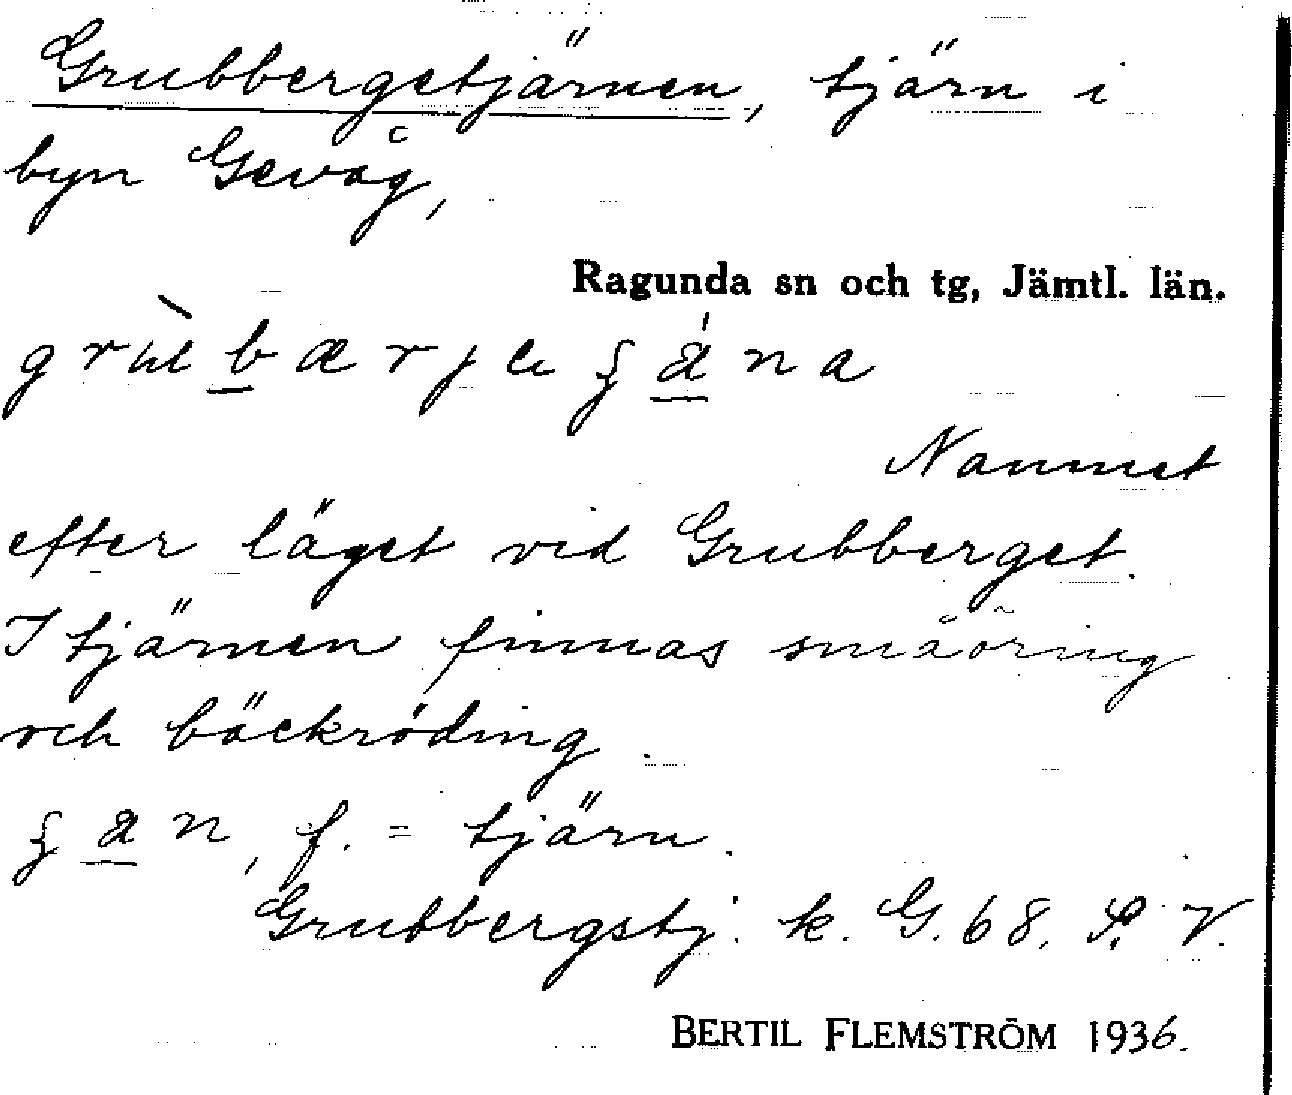 Grubbergetjärnen, tjärn i
byn Gevåg,
Ragunda sn och tg, Jämtl. län.
Namnet
efter läget vid Grubberget.
I tjärnen finnas småöring
och bäckröding.
f. = tjärn.
Grubbergstj. k. G. 68. S. V.
BERTIL FLEMSTRÖM 1936.